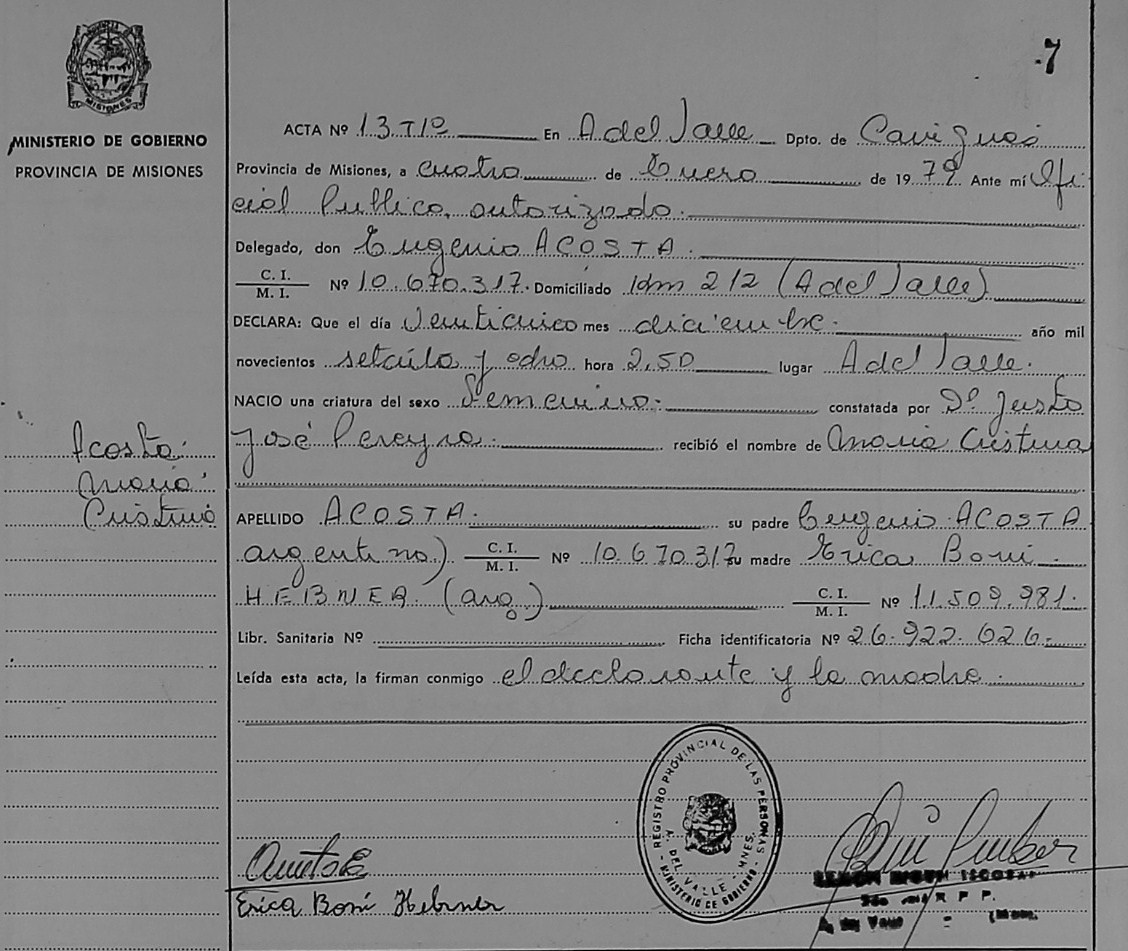 7
MISIONES
MINISTERIO DE GOBIERNO
PROVINCIA DE MISIONES
Acosta
María
Cristina
ACTA Nº 13 Tº En A del Valle Dpto. de Cainguas
Provincia de Misiones, a cuatro de Enero de 1979 Ante mí Ofi-
cial Publico autorizado.
Delegado, don Eugenio ACOSTA.
C. I.
M. I. Nº 10.670.317. Domiciliado Km 212 (A del Valle)
DECLARA: Que el día Veinticinco mes diciembre. año mil
novecientos setenta y ocho hora 2,50 lugar A del Valle.
NACIO una criatura del sexo Femenino. constatada por Dº Justo
José Pereyra. recibió el nombre de María Cristina
APELLIDO ACOSTA. su padre Eugenio ACOSTA
argentino) C. I.
M. I. Nº 10.670.317 su madre Erica Boni
HEBNER (arg.) C. I.
M. I. Nº 11.509.981.
Libr. Sanitaria Nº Ficha identificatoria Nº 26.922.626.
Leída esta acta, la firman conmigo el declarante y la madre.
REGISTRO PROVINCIAL DE LAS PERSONAS
A. DEL VALLE - MNES.
MINISTERIO DE GOBIERNO
Erica Boni Hebner